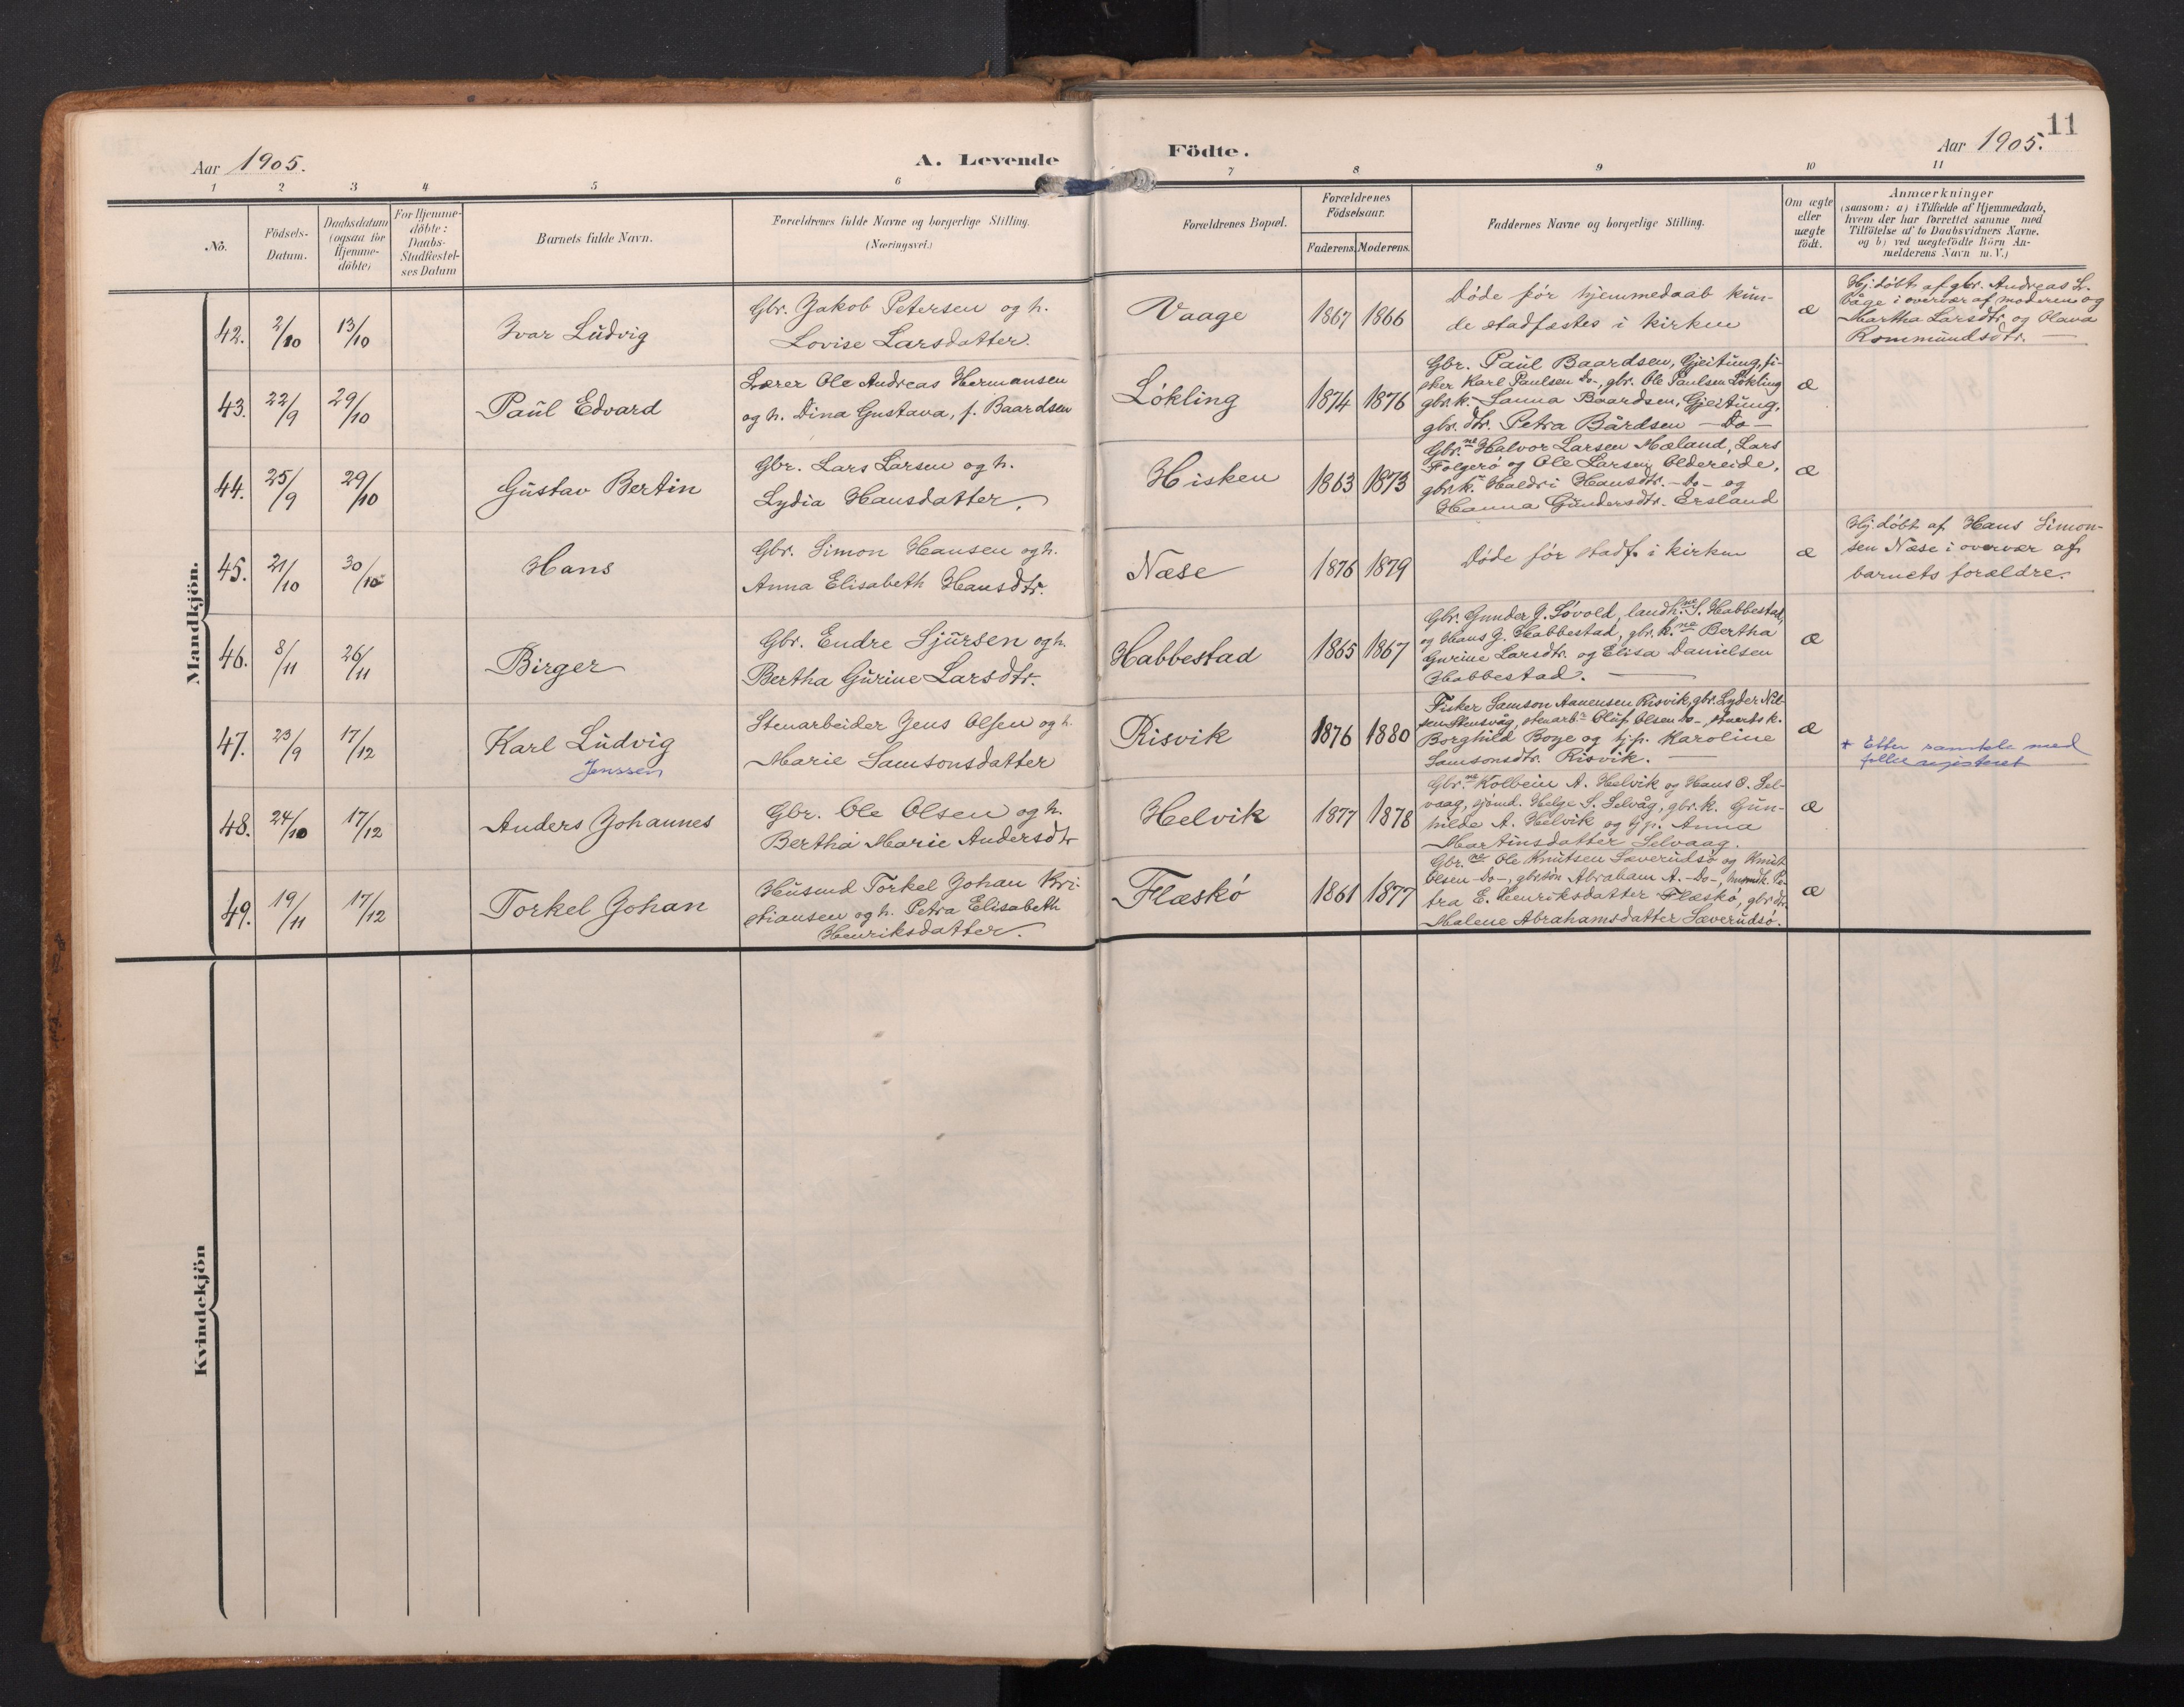 11
Aar 1905.
A. Levende
Födte.
Aar 1905.
1 2 3 4 5 6 7 8 9 10 11
No.
Födsels-
Datum.
Daabsdatum
(ogsaa for
Hjemme-
döbte)
For Hjemme-
döbte:
Daabs-
Stadfæstel-
ses Datum
Barnets fulde Navn.
Forældrenes fulde Navne og borgerlige Stilling.
(Næringsvei.)
Forældrenes Bopæl.
Forældrenes
Födselsaar.
Faderens. Moderens.
Faddernes Navne og borgerlige Stilling.
Om ægte
eller
uægte
födt.
Anmærkninger
(saasom: a) i Tilfælde af Hjemmedaab,
hvem der har forrettet samme med
Tilföielse af to Daabsvidners Navne.
og b) ved uægtefödte Börn An-
melderens Navn m. V.)
Mandkjön.
42. 2/10 13/10
Ivar Ludvig
Gbr. Jakob Petersen og h.
Lovise Larsdatter.
Vaage
1867 1866
Døde før hjemmedaab kun-
de stadfæstes i kirken
æ
Hj. døbt af gbr. Andreas L.
Våge i overvær af moderen og
Martha Larsdtr. og Olava
Rommundsdtr.
43. 22/9 29/10
Paul Edvard
Lærer Ole Andreas Hermansen
og h. Dina Gustava, f. Baardsen
Løkling
1874 1876
Gbr. Paul Baardsen, Gjeitung, fi-
sker Karl Paulsen do-, gbr. Ole Paulsen Løkling
gbr.k. Sanna Baardsen, Gjeitung,
gbr. dtr. Petra Bårdsen - Do -
æ
44. 25/9 29/10
Gustav Bertin
Gbr. Lars Larsen og h.
Lydia Hansdatter.
Hisken
1863 1873
Gbr.ne Halvor Larsen Mæland, Lars
Folgerø og Ole Larsen Oldereide,
gbr.k. Haldri Hansdtr. - do - og
Hanna Gundersdtr. Ersland
æ
45. 21/10 30/10
Hans
Gbr. Simon Hansen og h.
Anna Elisabeth Hansdtr.
Næse
1876 1879
Døde før stadf. i kirken
æ
Hj. døbt af Hans Simon-
sen Næse i overvær af
barnets forældre.
46. 8/11 26/11
Birger
Gbr. Endre Sjursen og h.
Bertha Gurine Larsdtr.
Habbestad
1865 1867
Gbr. Gunder G. Løvold, landh. S. Habbestad,
og Hans J. Habbestad, gbr.k.ne Bertha
Gurine Larsdtr. og Elisa Danielsen
Habbestad.
æ
47. 23/9 17/12
Karl Ludvig
Jenssen
Stenarbeider Jens Olsen og h.
Marie Samsonsdatter
Risvik
1876 1880
Fisker Samson Aanensen Risvik, gbr. Lyder Nil-
sen Stensvåg, stenarbr. Oluf Olsen do -, stuerts k.
Borghild Boye og tj.p. Karoline
Samsonsdtr. Risvik.
æ
* Etter samtale med
48. 24/10 17/12
Anders Johannes
Gbr. Ole Olsen og h.
Bertha Marie Andersdtr
Helvik
1877 1878
Gbr.ne Kolbein A. Helvik og Hans O. Sel-
vaag, sjømd. Helge S. Selvåg, gbr.k. Gun-
hilde A. Helvik og tj.p. Anna
Martinsdatter Selvaag.
æ
49. 19/11 17/12
Torkel Johan
Husmd Torkel Johan Kri-
stiansen og h. Petra Elisabeth
Henriksdatter.
Flæskø
1861 1877
Gbr.ne Ole Knutsen Sæverudsø og Knut
Olsen - Do -, gbr.søn Abraham A. - Do -, husmdk. Pe-
tra E. Henriksdatter Flæskø, gbr.dtr.
Malene Abrahamsdatter Sæverudsø.
æ
Kvindekjön